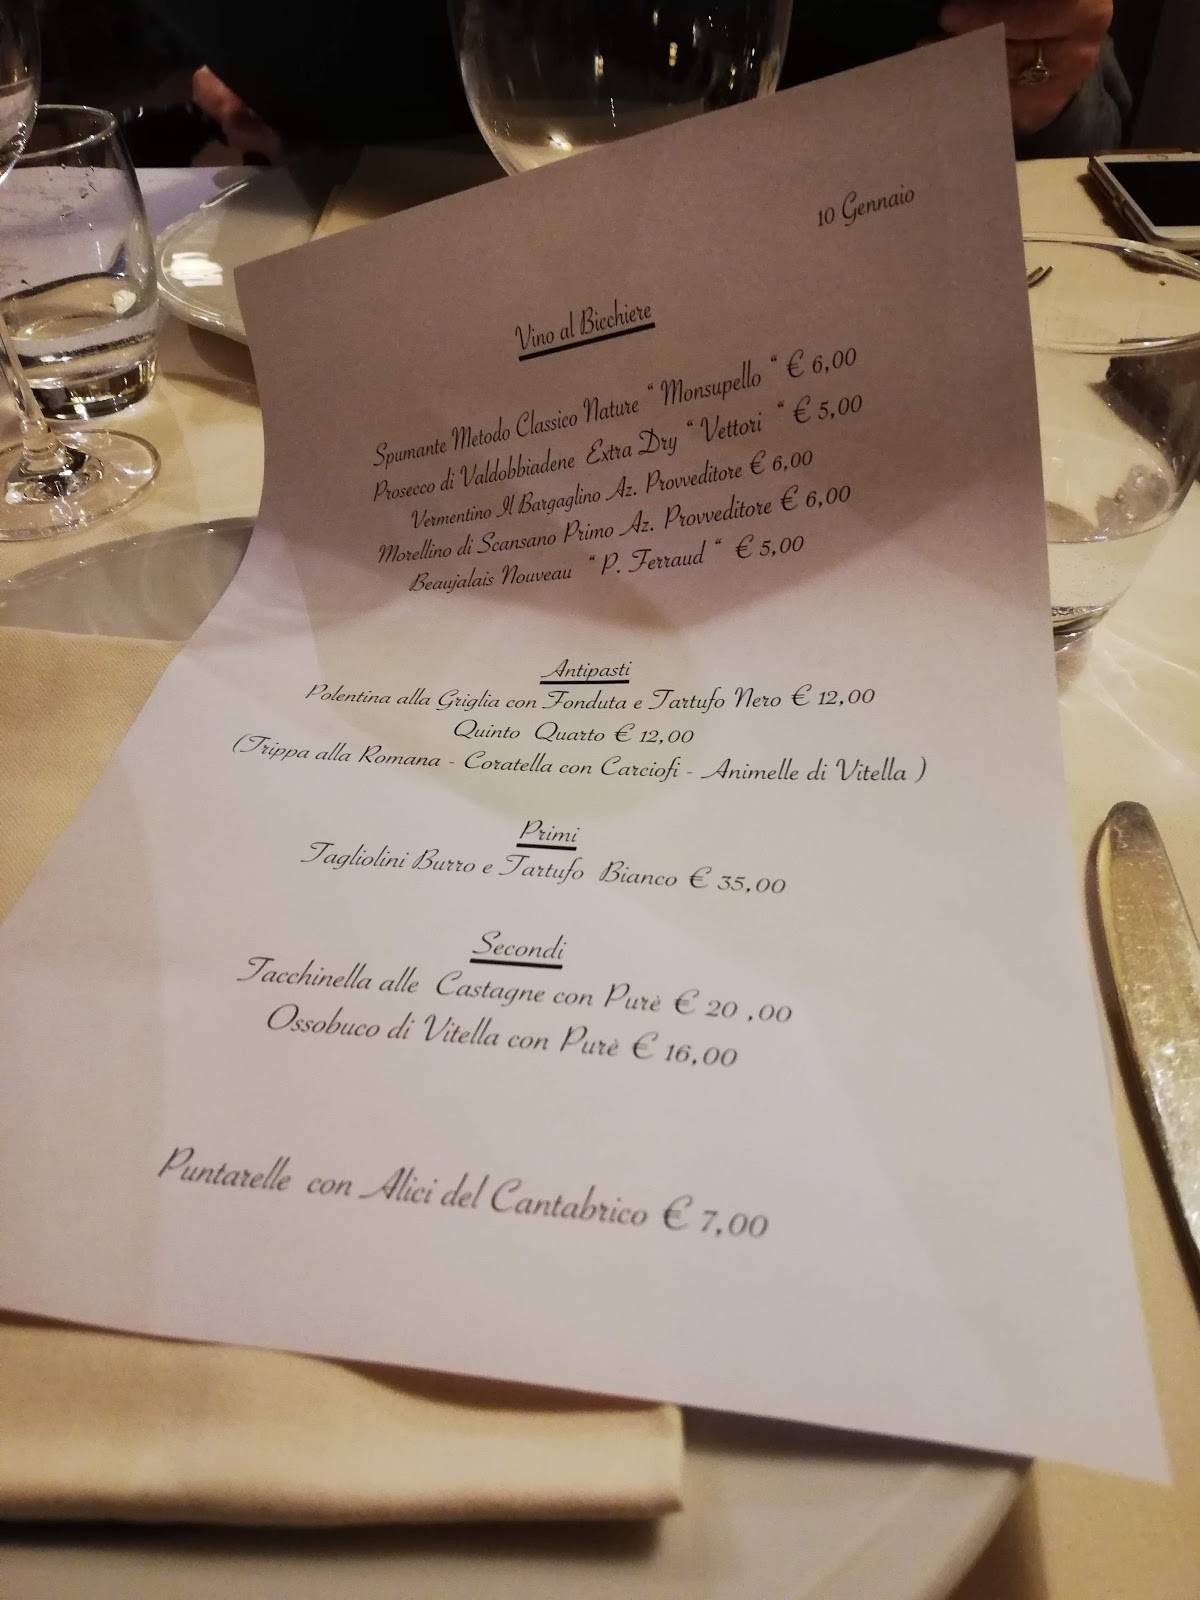 10 Gennaio
Vino al Bicchiere
Spumante Metodo Classico Nature “ Monsupello “ € 6,00
Prosecco di Valdobbiadene Extra Dry “ Vettori “ € 5,00
Vermentino Il Bargaglino Az. Provveditore € 6,00
Morellino di Scansano Primo Az. Provveditore € 6,00
Beaujalais Nouveau “ P. Ferraud “ € 5,00
Antipasti
Polentina alla Griglia con Fonduta e Tartufo Nero € 12,00
Quinto Quarto € 12,00
(Trippa alla Romana - Coratella con Carciofi - Animelle di Vitella )
Primi
Tagliolini Burro e Tartufo Bianco € 35,00
Secondi
Tacchinella alle Castagne con Purè € 20 ,00
Ossobuco di Vitella con Purè € 16,00
Puntarelle con Alici del Cantabrico € 7,00